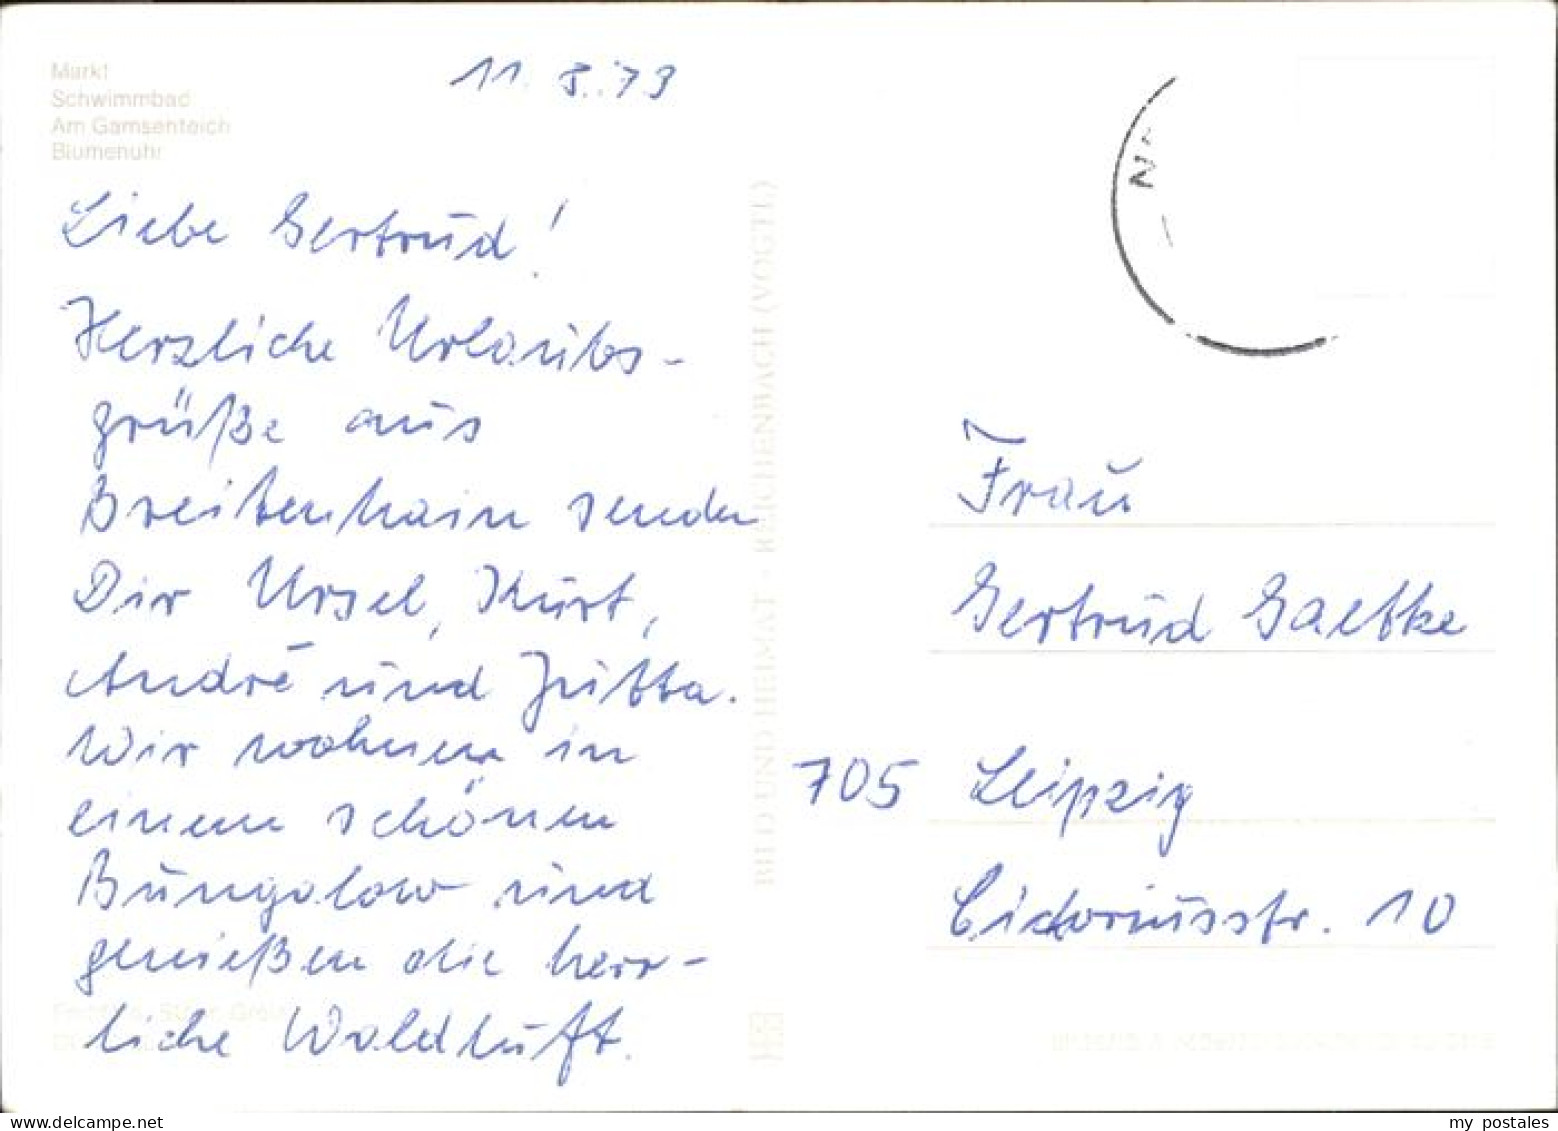 Markt
Schwimmbad
Am Gamsenteich
Blumenuhr
11. 8. 73
Liebe Gertrud!
Herzliche Urlaubs-
grüße aus
Breitenhain senden
Dir Ursel, Kurt,
André und Jutta.
Wir wohnen in
einem schönen
Bungalow und
genießen die herr-
liche Waldluft.
BILD UND HEIMAT · REICHENBACH (VOGTL)
Frau
Gertrud Gaebke
705 Leipzig
Cichoriusstr. 10
my_postales
www.delcampe.net